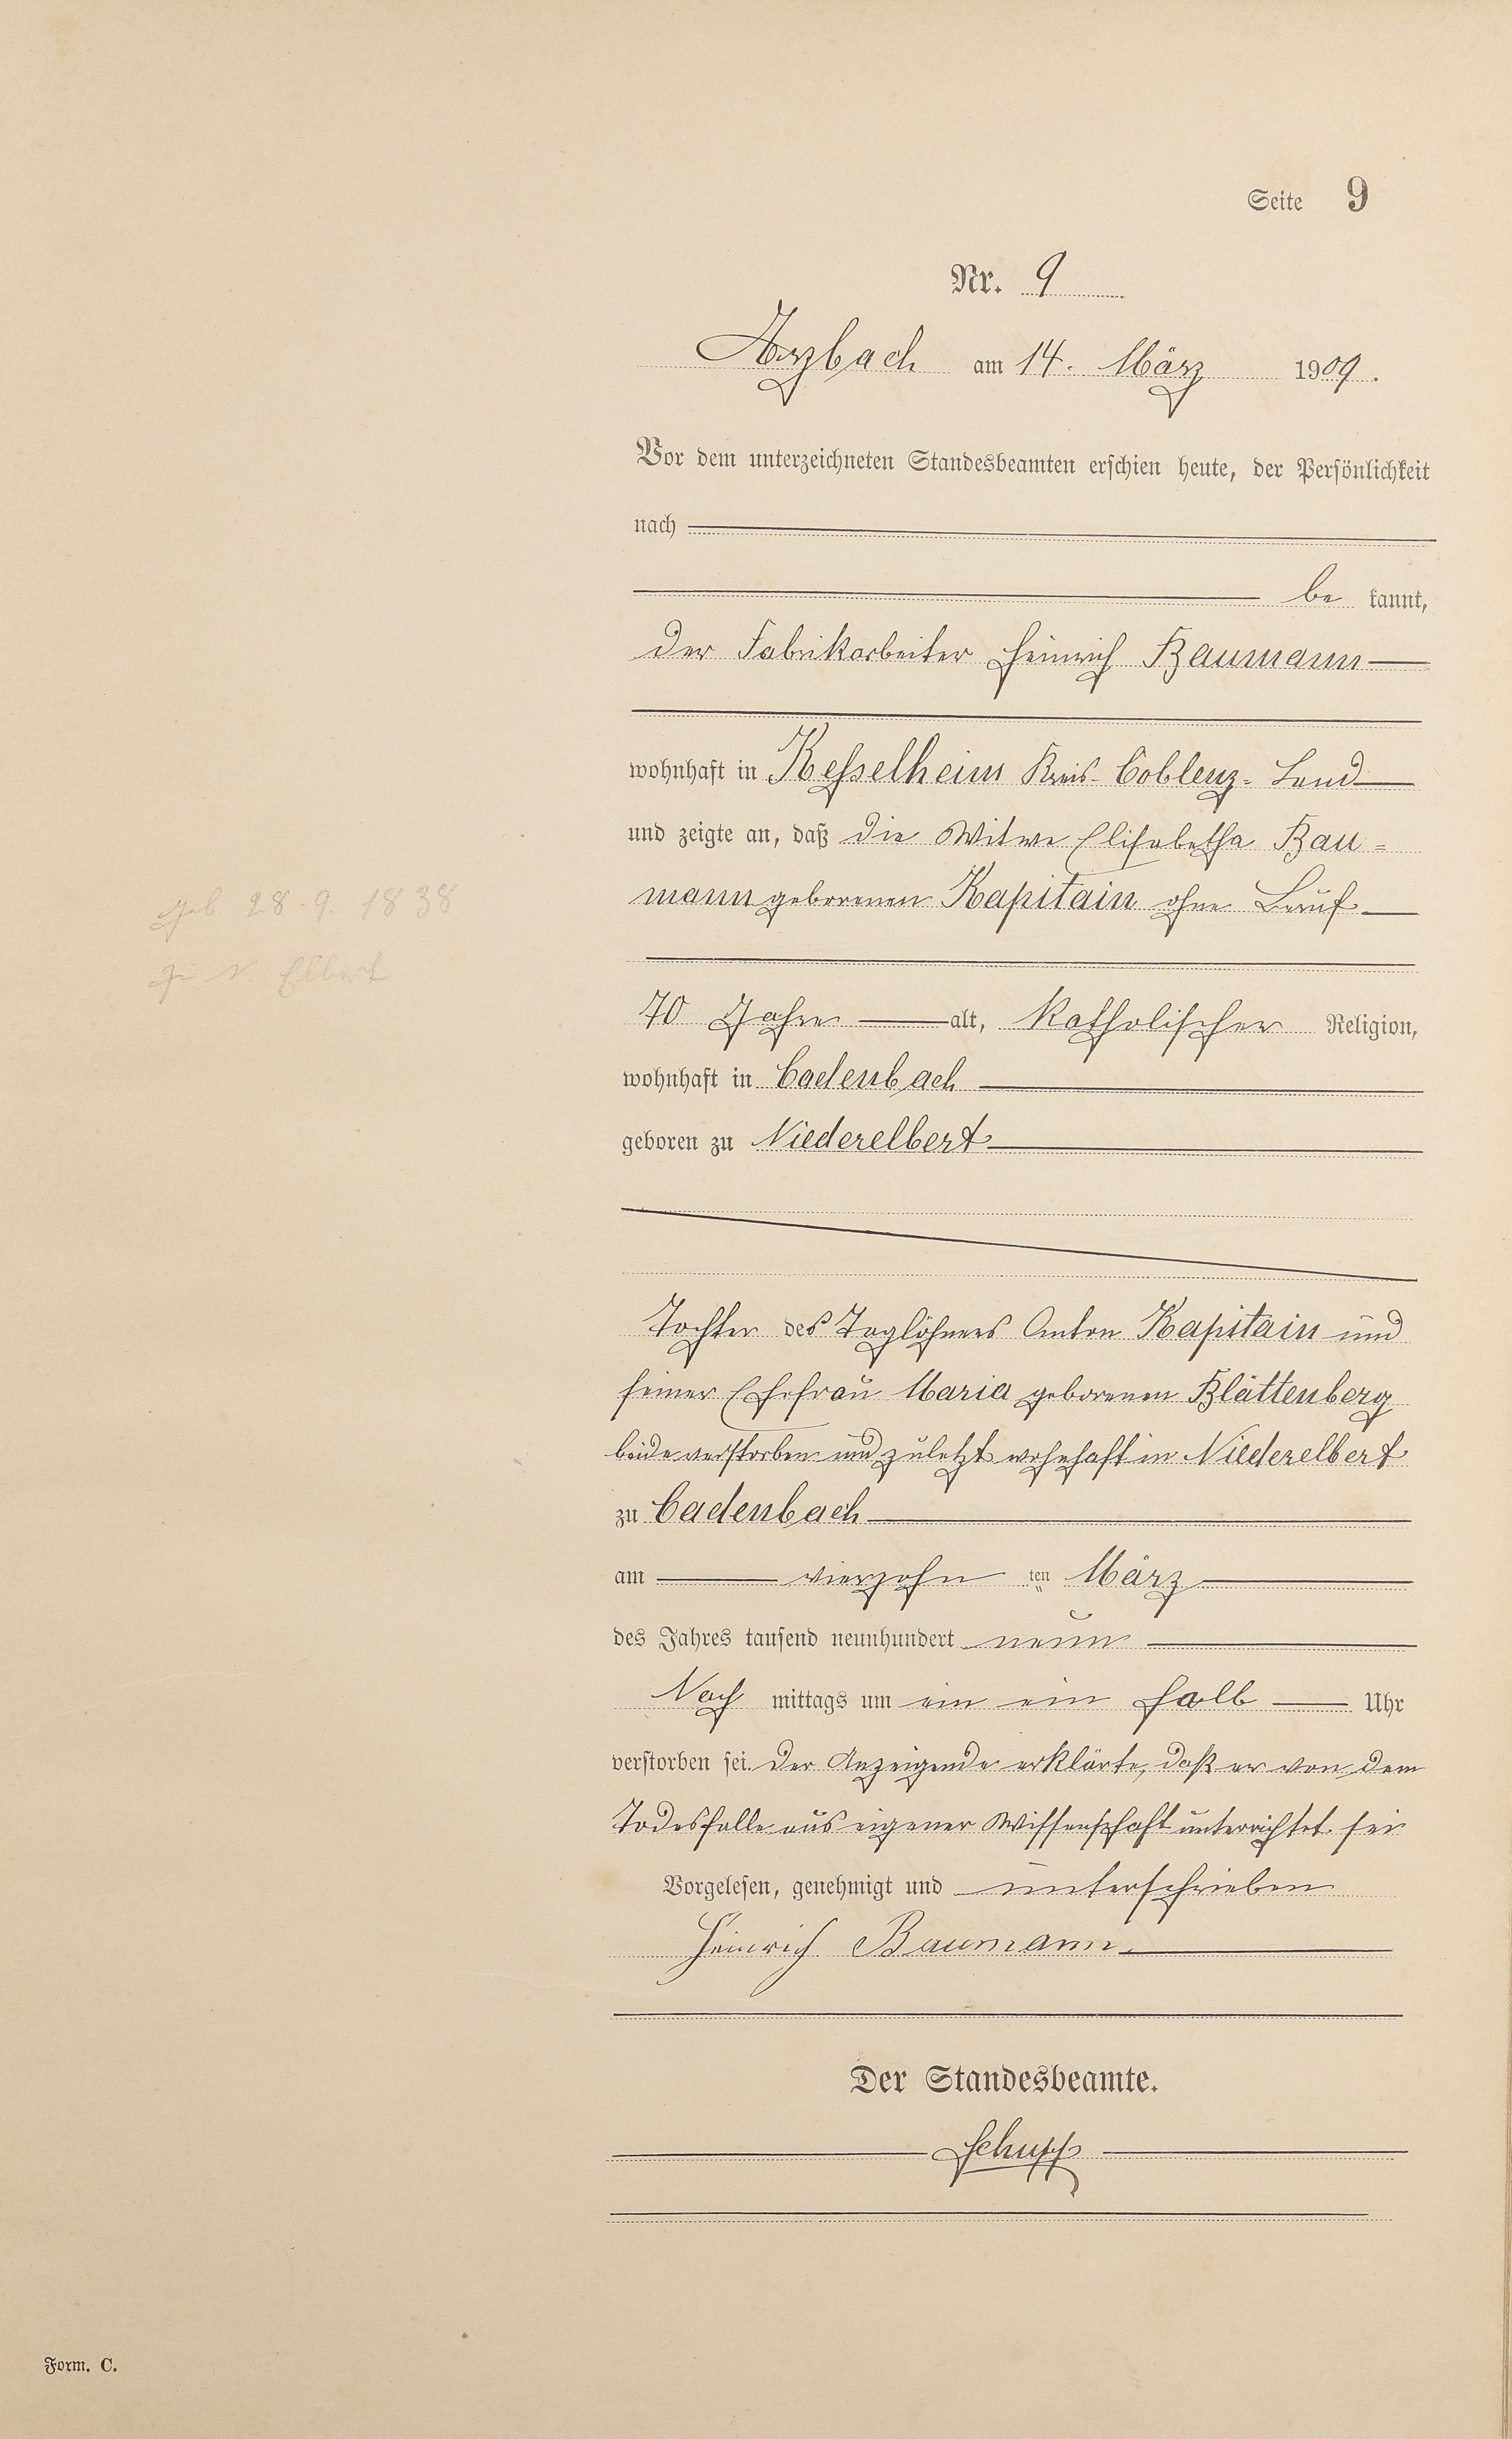 Seite 9
Nr. 9
Arzbach am 14. März 1909.
Vor dem unterzeichneten Standesbeamten erschien heute, der Persönlichkeit
nach
be kannt,
der Fabrikarbeiter Heinrich Baumann
wohnhaft in Kesselheim Kreis Coblenz-Land
und zeigte an, daß die Witwe Elisabetha Bau=
mann geborenen Kapitain ohne Beruf
geb. 28.9.1838
zu N. Elbert
70 Jahre alt, katholischer Religion,
wohnhaft in Cadenbach
geboren zu Niederelbert
Tochter des Taglöhners Anton Kapitain und
seiner Ehefrau Maria geborenen Blättenberg
beide verstorben und zuletzt wohnhaft in Niederelbert
zu Cadenbach
am vierzehn ten März
des Jahres tausend neunhundert neun
Nach mittags um ein ein halb Uhr
verstorben sei. Der Anzeigende erklärte, daß er von dem
Todesfalle aus eigener Wissenschaft unterrichtet sei
Vorgelesen, genehmigt und unterschrieben
Heinrich Baumann
Der Standesbeamte.
Schupp
Form. C.